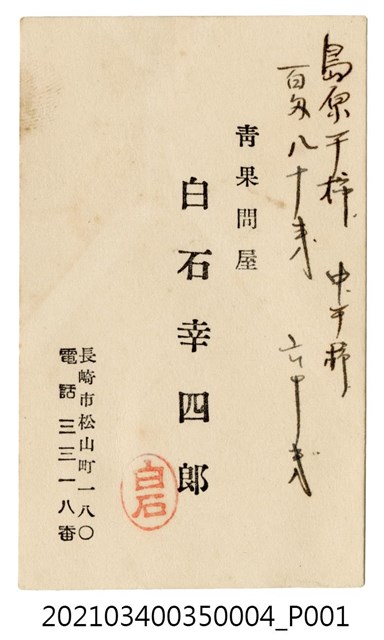 島原干柿 中干柿
百匁八十
青果問屋
白石幸四郎
長崎市松山町一八〇
電話三三一八番
白石
202103400350004_P001